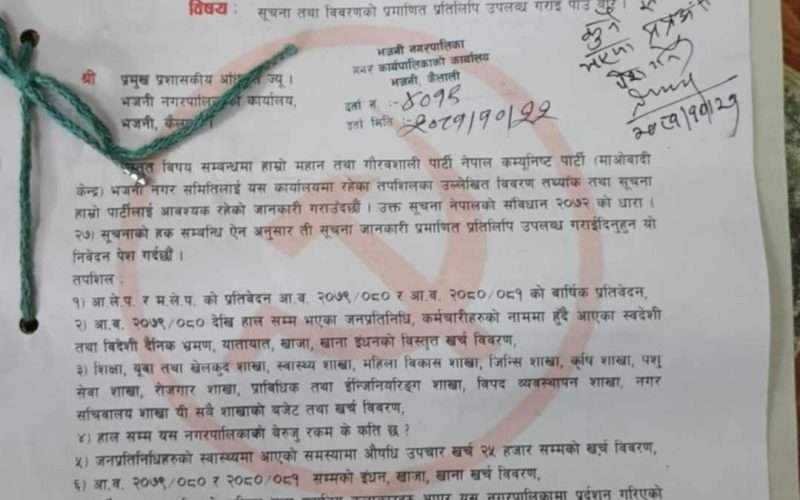 विषय: सूचना तथा विवरणको प्रमाणित प्रतिलिपि उपलब्ध गराई पाउँ
भजनी नगरपालिका
नगर कार्यपालिकाको कार्यालय
भजनी, कैलाली
दर्ता नं. :- ४०१९
दर्ता मिति :- २०८१/१०/२२
२०८१/१०/२१
श्री प्रमुख प्रशासकीय ज्यू ।
भजनी कार्यालय,
भजनी,
विषय सम्बन्धमा हाम्रो महान तथा गौरवशाली पार्टी नेपाल कम्यूनिष्ट पार्टी (माओवादी
केन्द्र) भजनी नगर समितिलाई यस कार्यालयमा रहेका तपशिलका उल्लेखित विवरण तथ्यांक तथा सूचना
हाम्रो पार्टीलाई आवश्यक रहेको जानकारी गराउँदछौं । उक्त सूचना नेपालको संविधान २०७२ को धारा ।
२७) सूचनाको हक सम्बन्धि ऐन अनुसार ती सूचना जानकारी प्रमाणित प्रतिलिपि उपलब्ध गराईदिनुहुन यो
निवेदन पेश गर्दछौं ।
तपशिल :
१) आ.ले.प. र म.ले.प. को प्रतिवेदन आ.व. २०७९/०८० र आ.व. २०८०/०८१ को बार्षिक प्रतिवेदन,
२) आ.व. २०७९/०८० देखि हाल सम्म भएका जनप्रतिनिधि, कर्मचारीहरुको नाममा हुँदै आएका स्वदेशी
तथा विदेशी दैनिक भ्रमण, यातायात, खाजा, खाना इंधनको विस्तृत खर्च विवरण,
३) शिक्षा, यूवा तथा खेलकुद शाखा, स्वास्थ्य शाखा, महिला विकास शाखा, जिन्सि शाखा, कृषि शाखा, पशु
सेवा शाखा, रोजगार शाखा, प्राविधिक तथा ईन्जिनियरिङ्ग शाखा, विपद व्यवस्थापन शाखा, नगर
सचिवालय शाखा यी सवै शाखाको बजेट तथा खर्च विवरण,
४) हाल सम्म यस नगरपालिकाको वेरुजु रकम के कति छ ?
५) जनप्रतिनिधिहरुको स्वास्थ्यमा आएको समस्यामा औषधि उपचार खर्च २५ हजार सम्मको खर्च विवरण,
६) आ.व. २०७९/०८० र २०८०/०८१ सम्मको इंधन, खाजा, खाना खर्च विवरण,
यस नगरपालिकामा प्रर्दशन गरिएको